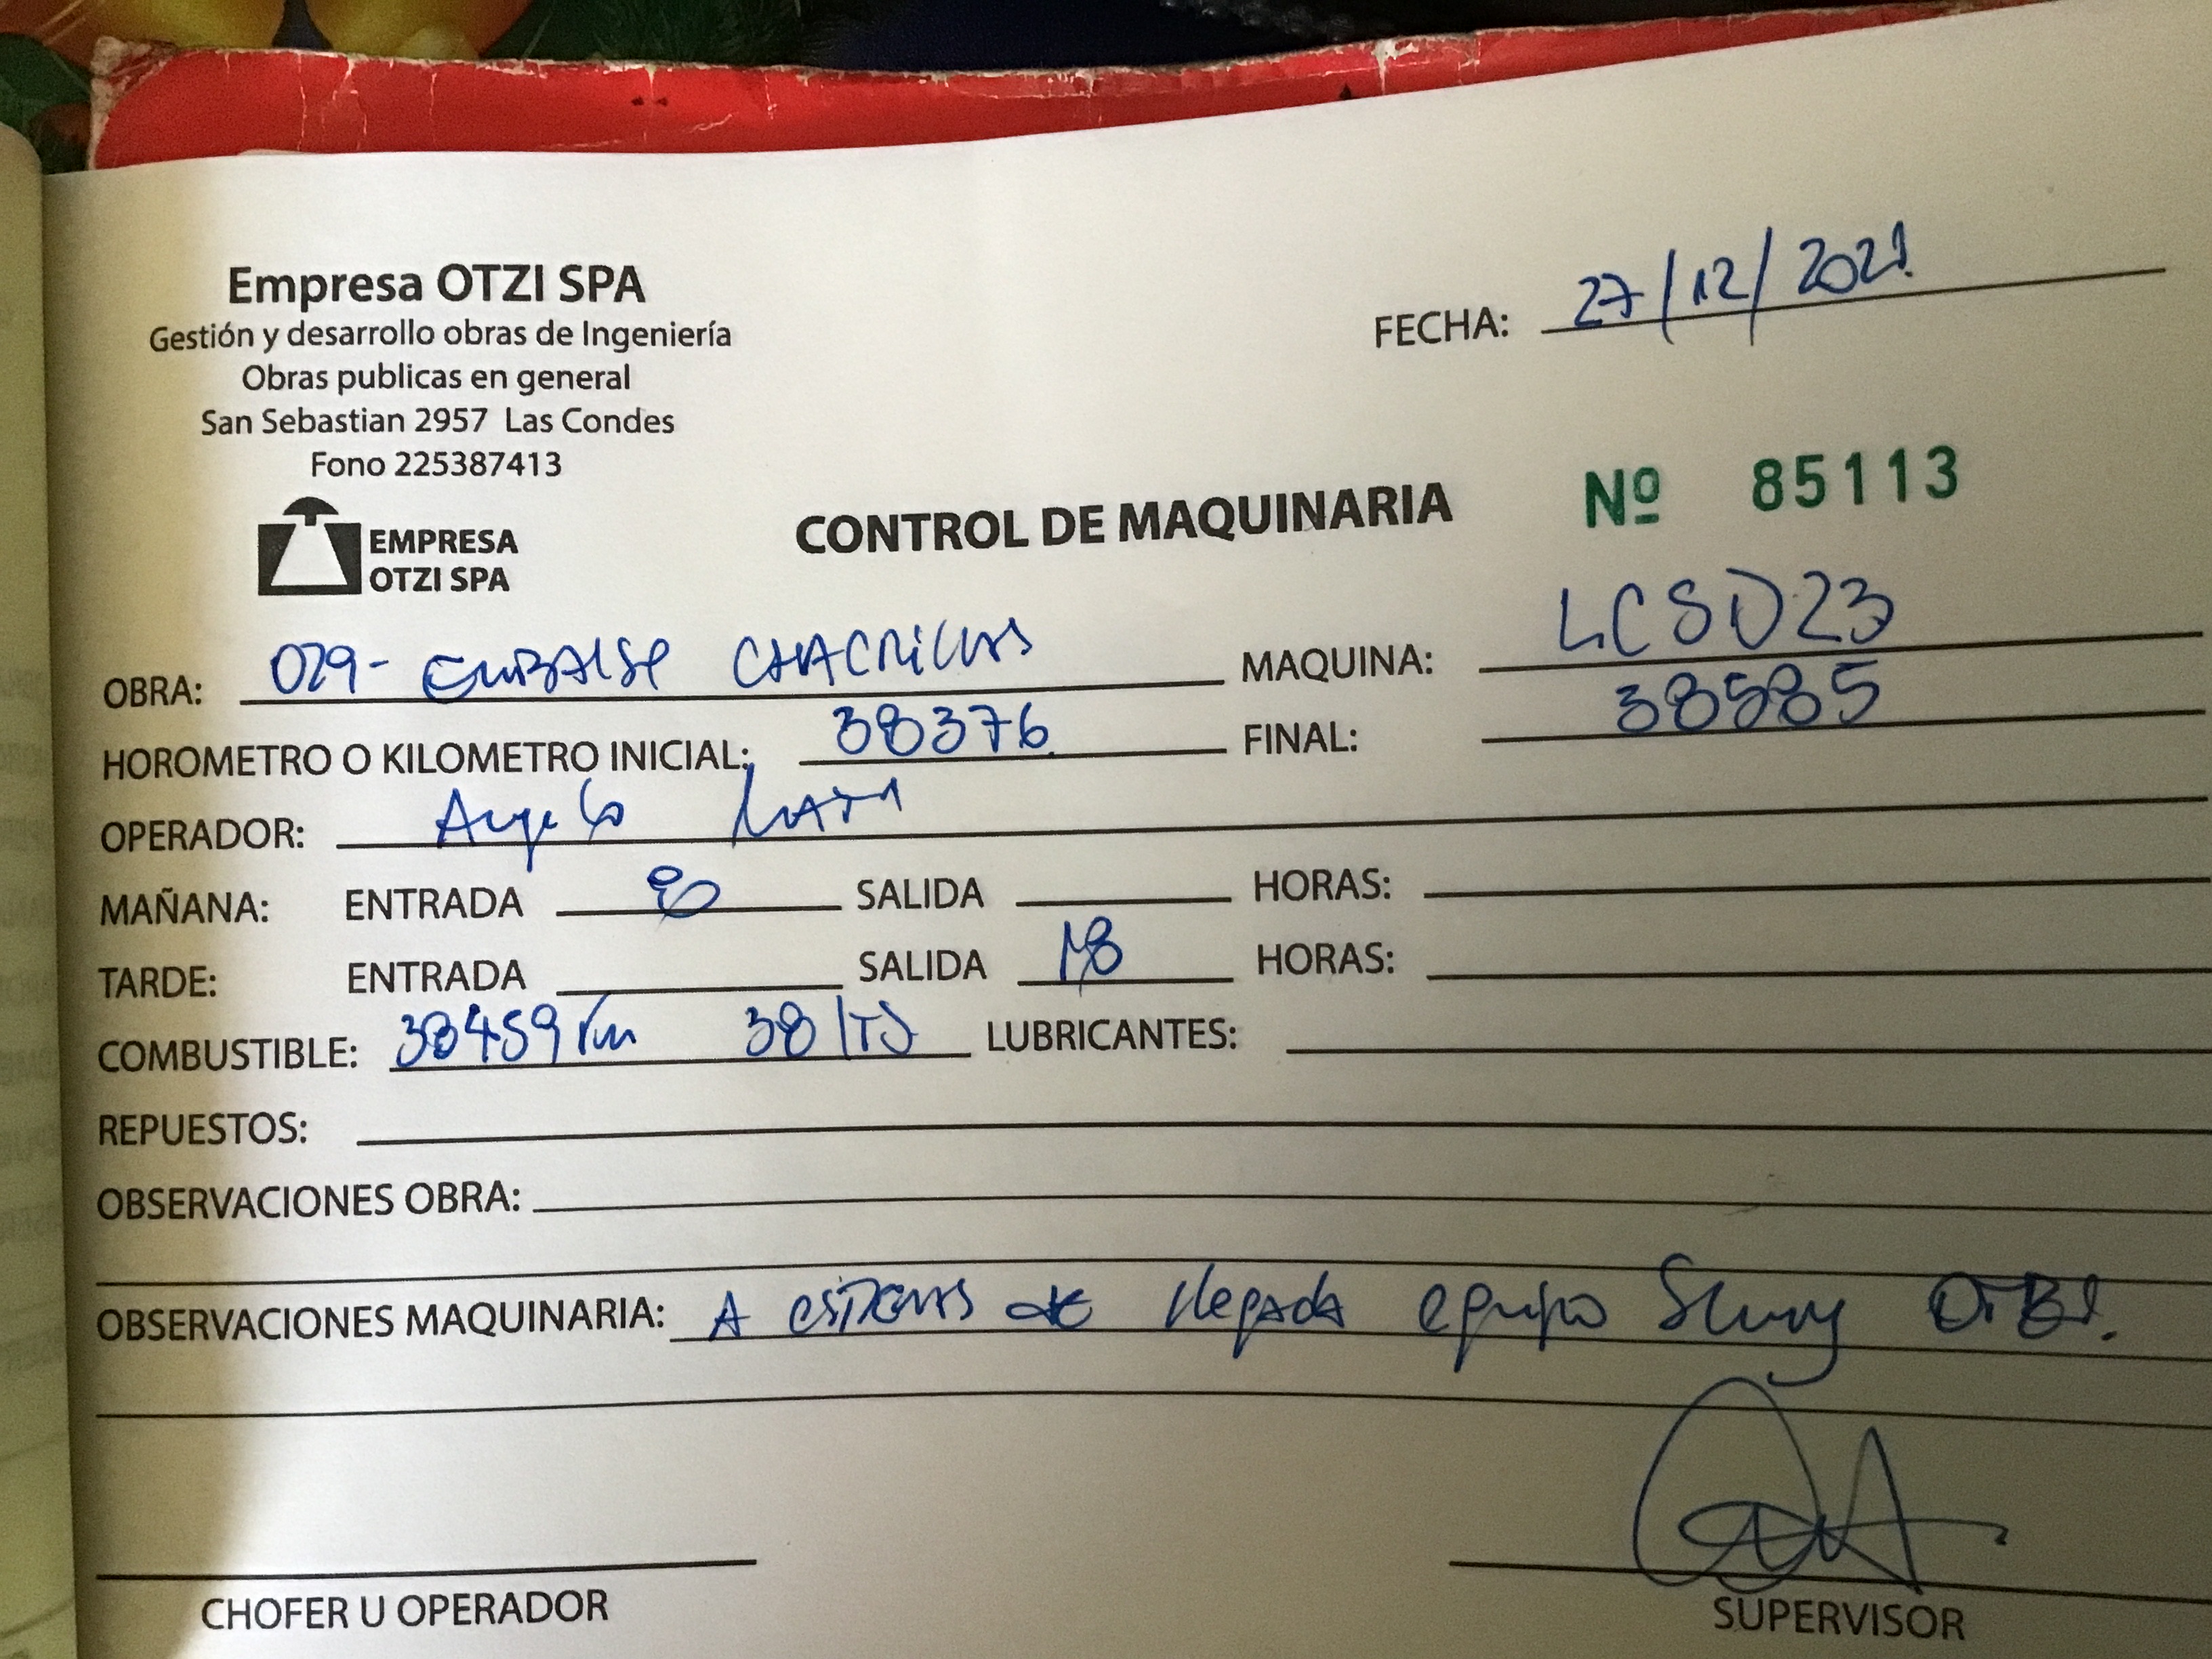 Empresa OTZI SPA
Gestión y desarrollo obras de Ingeniería
Obras publicas en general
San Sebastian 2957 Las Condes
Fono 225387413
FECHA: 27/12/2021
EMPRESA
OTZI SPA
CONTROL DE MAQUINARIA Nº 85113
OBRA: 079- MAQUINA: LCSD23
HOROMETRO O KILOMETRO INICIAL: 380376 FINAL: 38585
OPERADOR:
MAÑANA: ENTRADA 80 SALIDA HORAS:
TARDE: ENTRADA SALIDA 18 HORAS:
COMBUSTIBLE: 38459 38 LTS LUBRICANTES:
REPUESTOS:
OBSERVACIONES OBRA:
OBSERVACIONES MAQUINARIA: A de llegada
CHOFER U OPERADOR SUPERVISOR